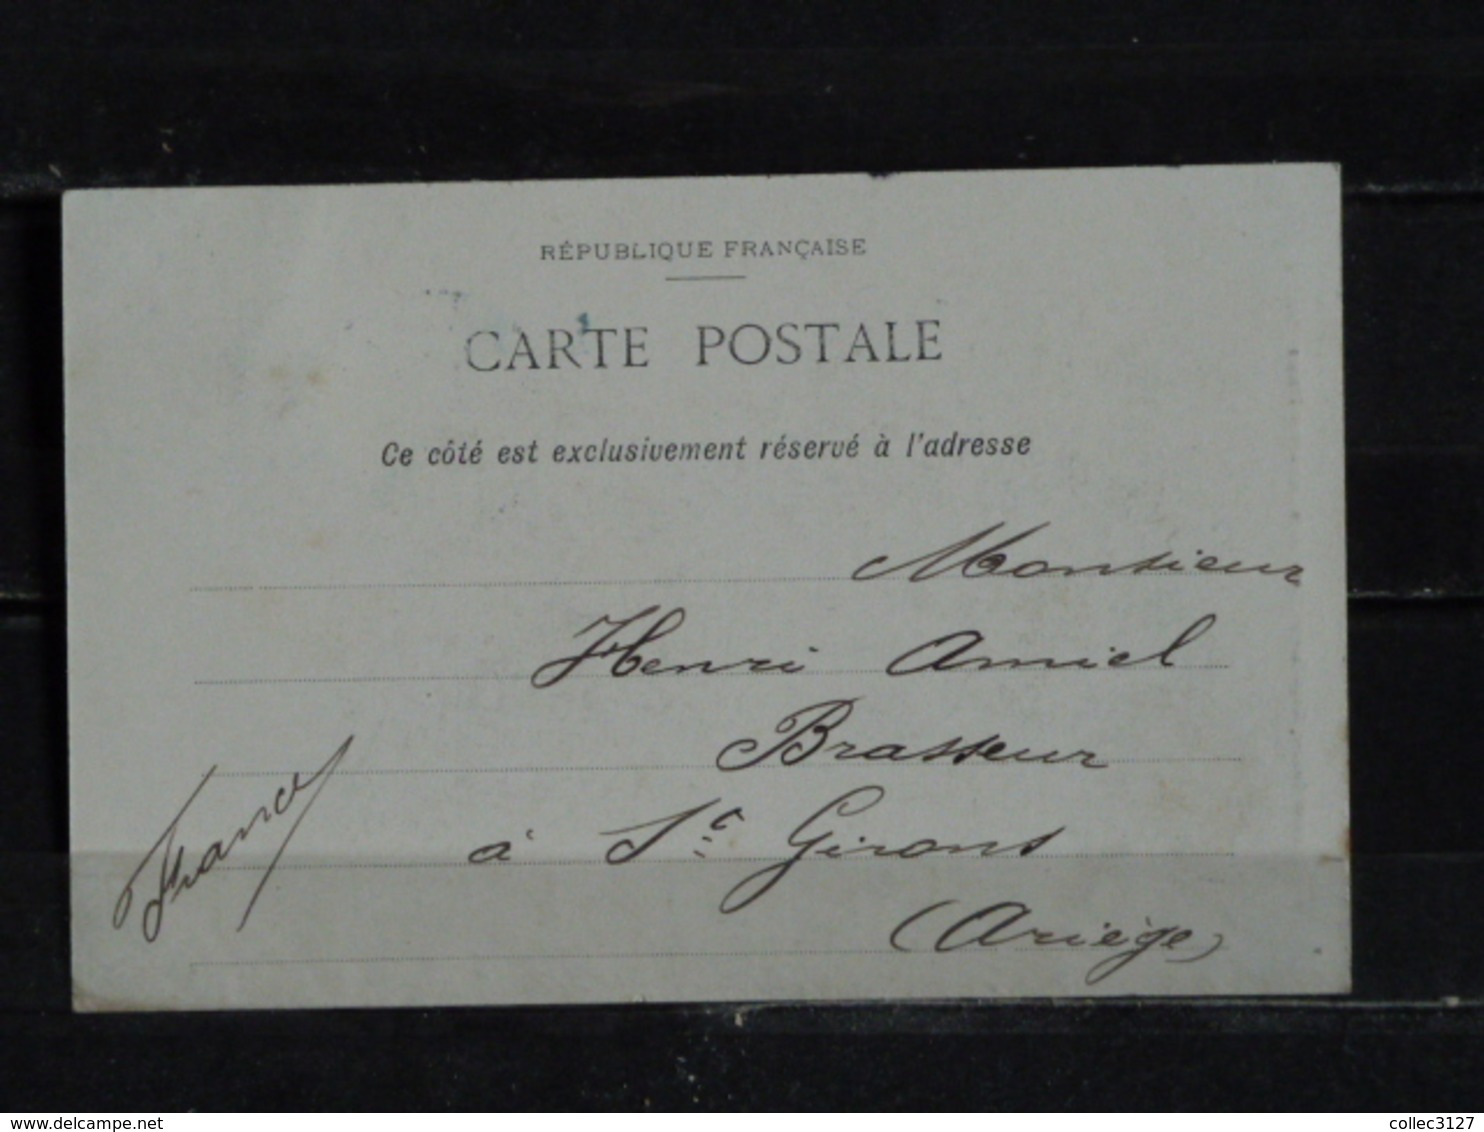 RÉPUBLIQUE FRANÇAISE
CARTE POSTALE
Ce côté est exclusivement réservé à l'adresse
Monsieur
Henri Amiel
Brasseur
à St Girons
(Ariège)
France
delcampe.net
collec3127